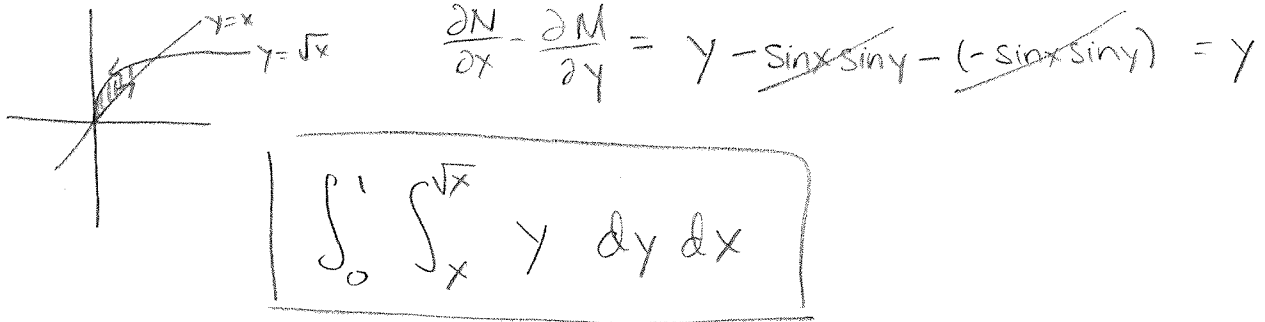 y=x
y=√x
∂N/∂x - ∂M/∂y = y - sinx siny - (-sinx siny) = y
∫₀¹ ∫ₓ^√x y dy dx